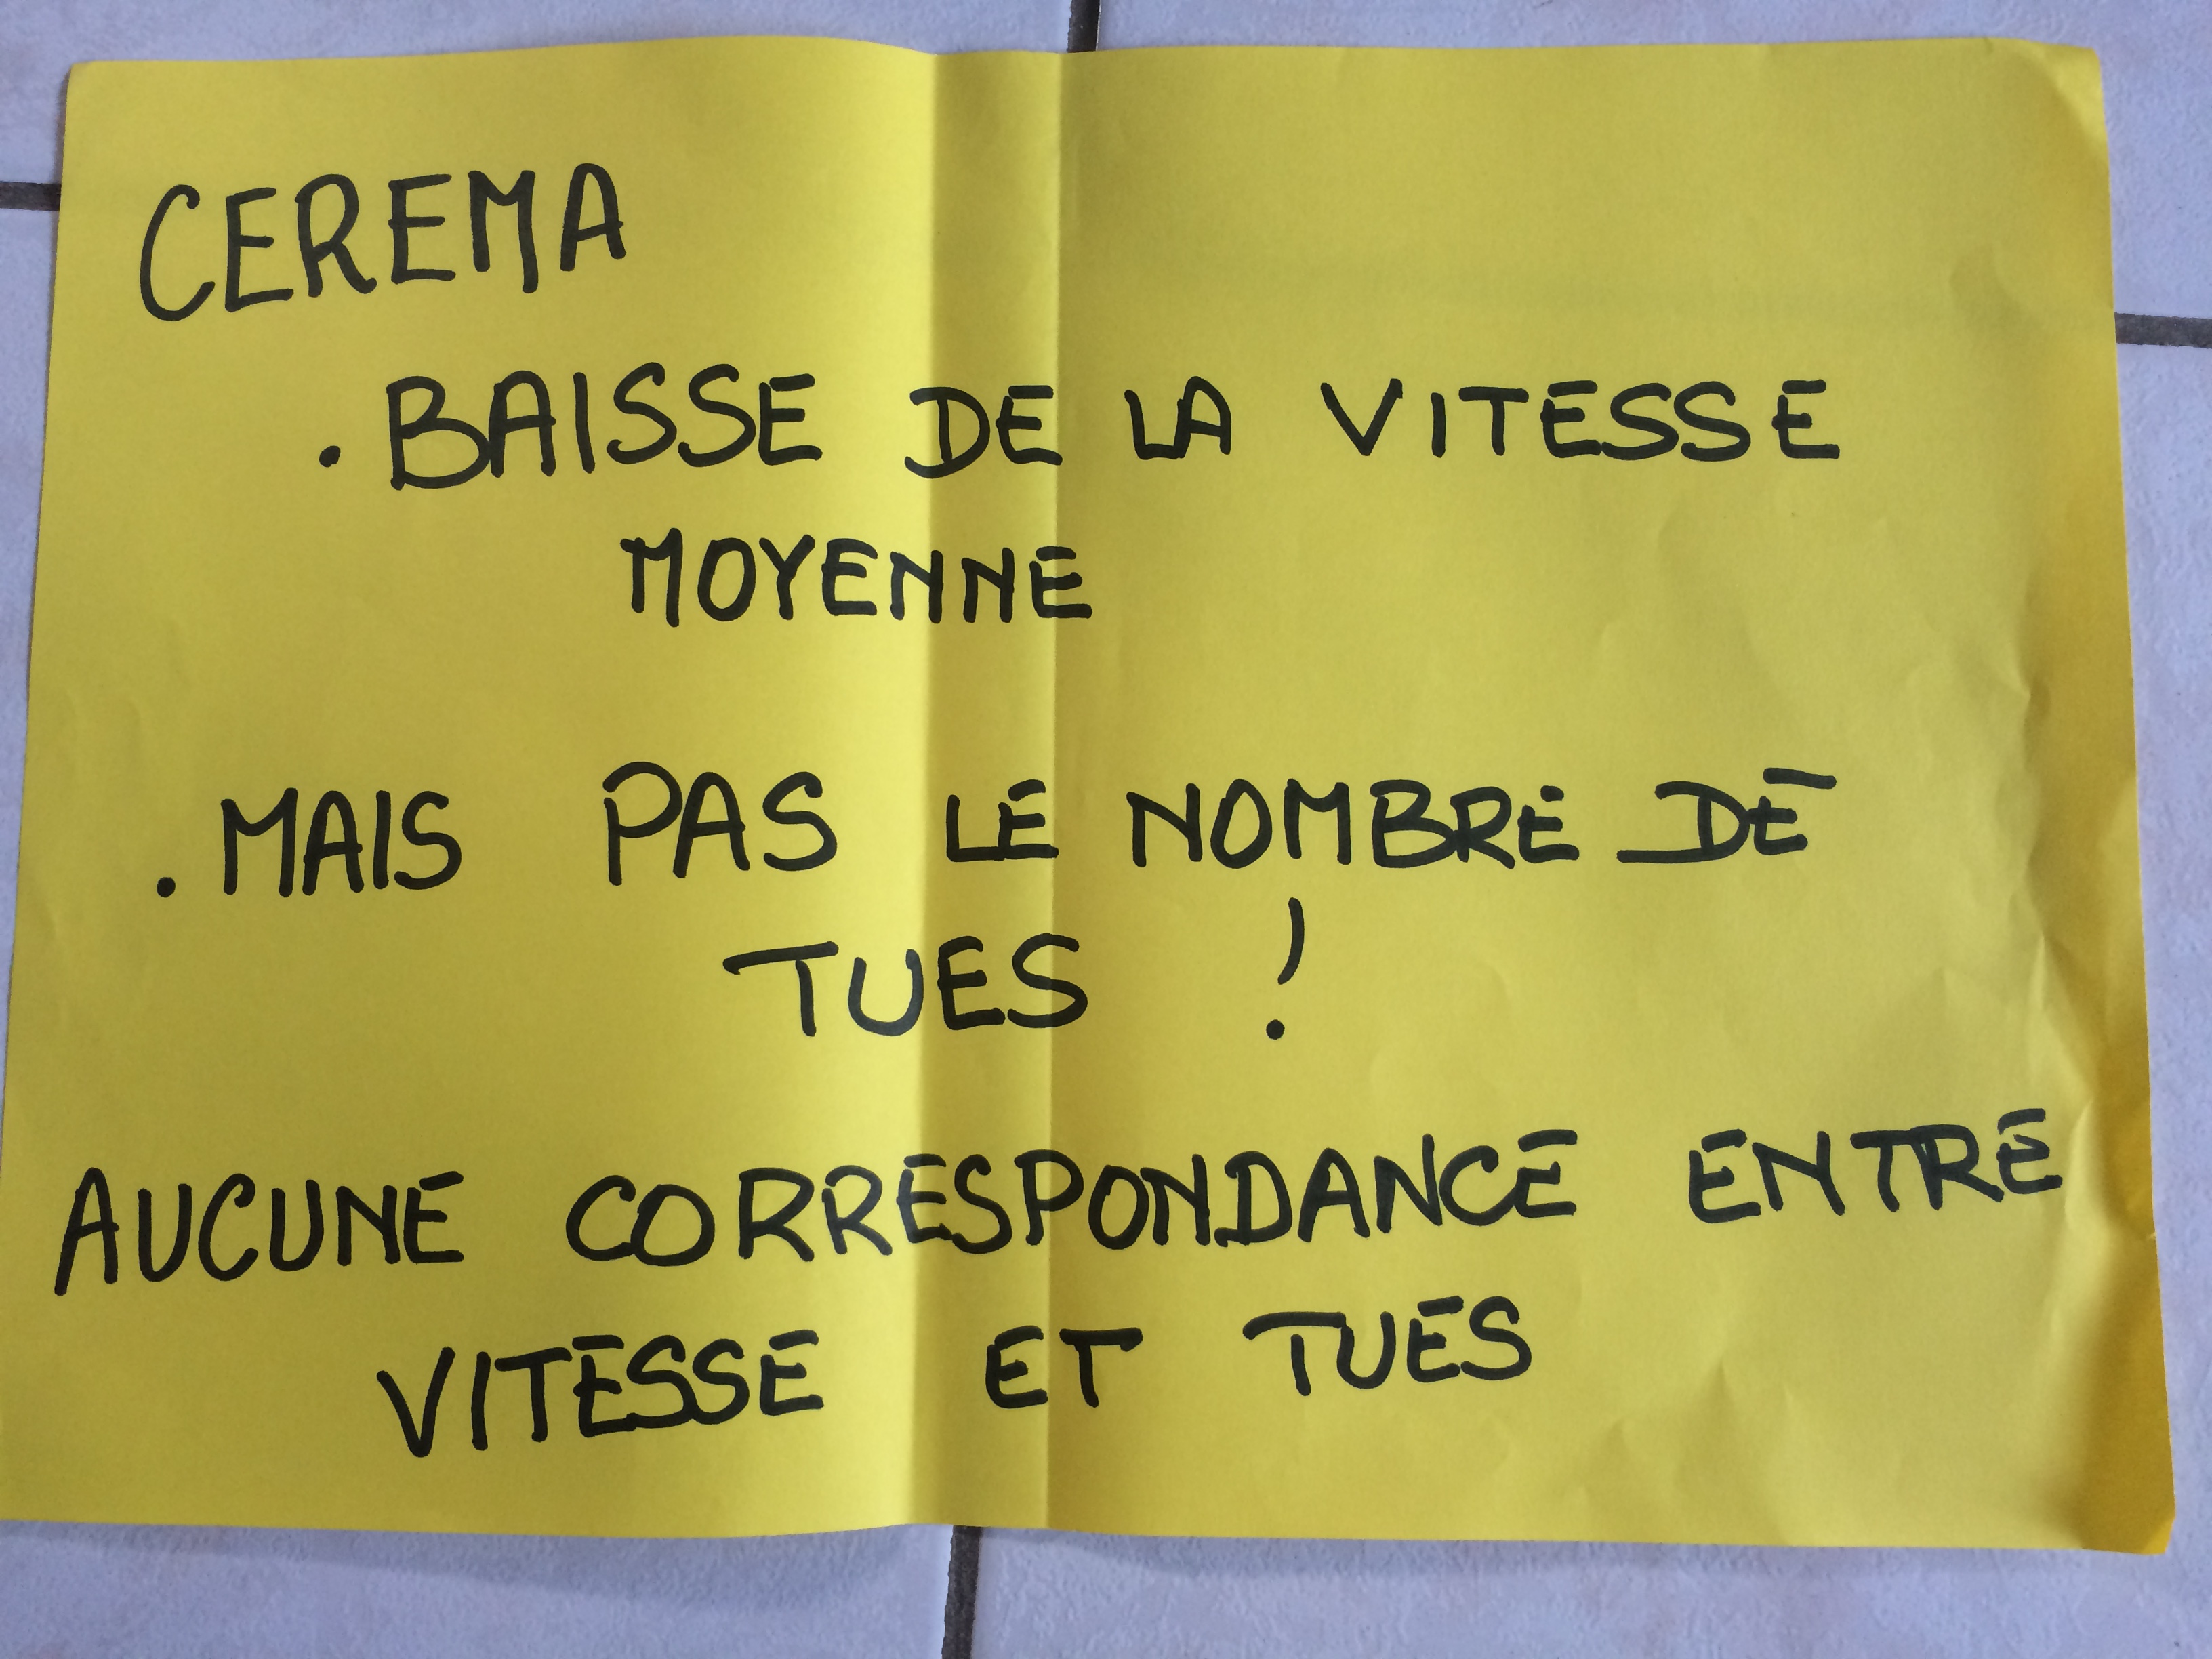 CEREMA
. BAISSE DE LA VITESSE
MOYENNE
. MAIS PAS LE NOMBRE DE
TUES !
AUCUNE CORRESPONDANCE ENTRE
VITESSE ET TUES